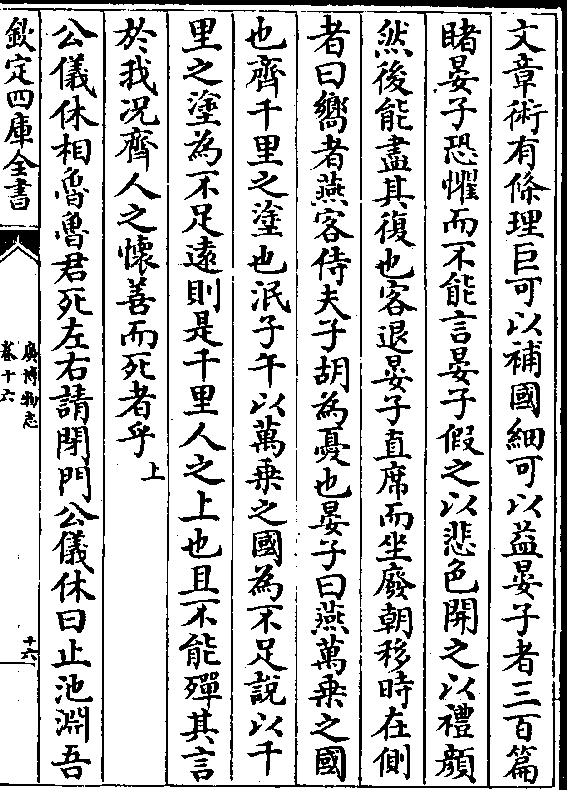 文章術有條理巨可以補國細可以益晏子者三百篇
睹晏子恐懼而不能言晏子假之以悲色開之以禮顔
然後能盡其復也客退晏子直席而坐廢朝移時在側
者曰嚮者燕客侍夫子胡為憂也晏子曰燕萬乗之國
也齊千里之塗也泯子午以萬乗之國為不足說以千
里之塗為不足遠則是千里人之上也且不能殫其言
於我况齊人之懷善而死者乎上
公儀休相魯魯君死左右請閉門公儀休曰止池淵吾
欽定四庫全書
廣博物志
卷十六
十六